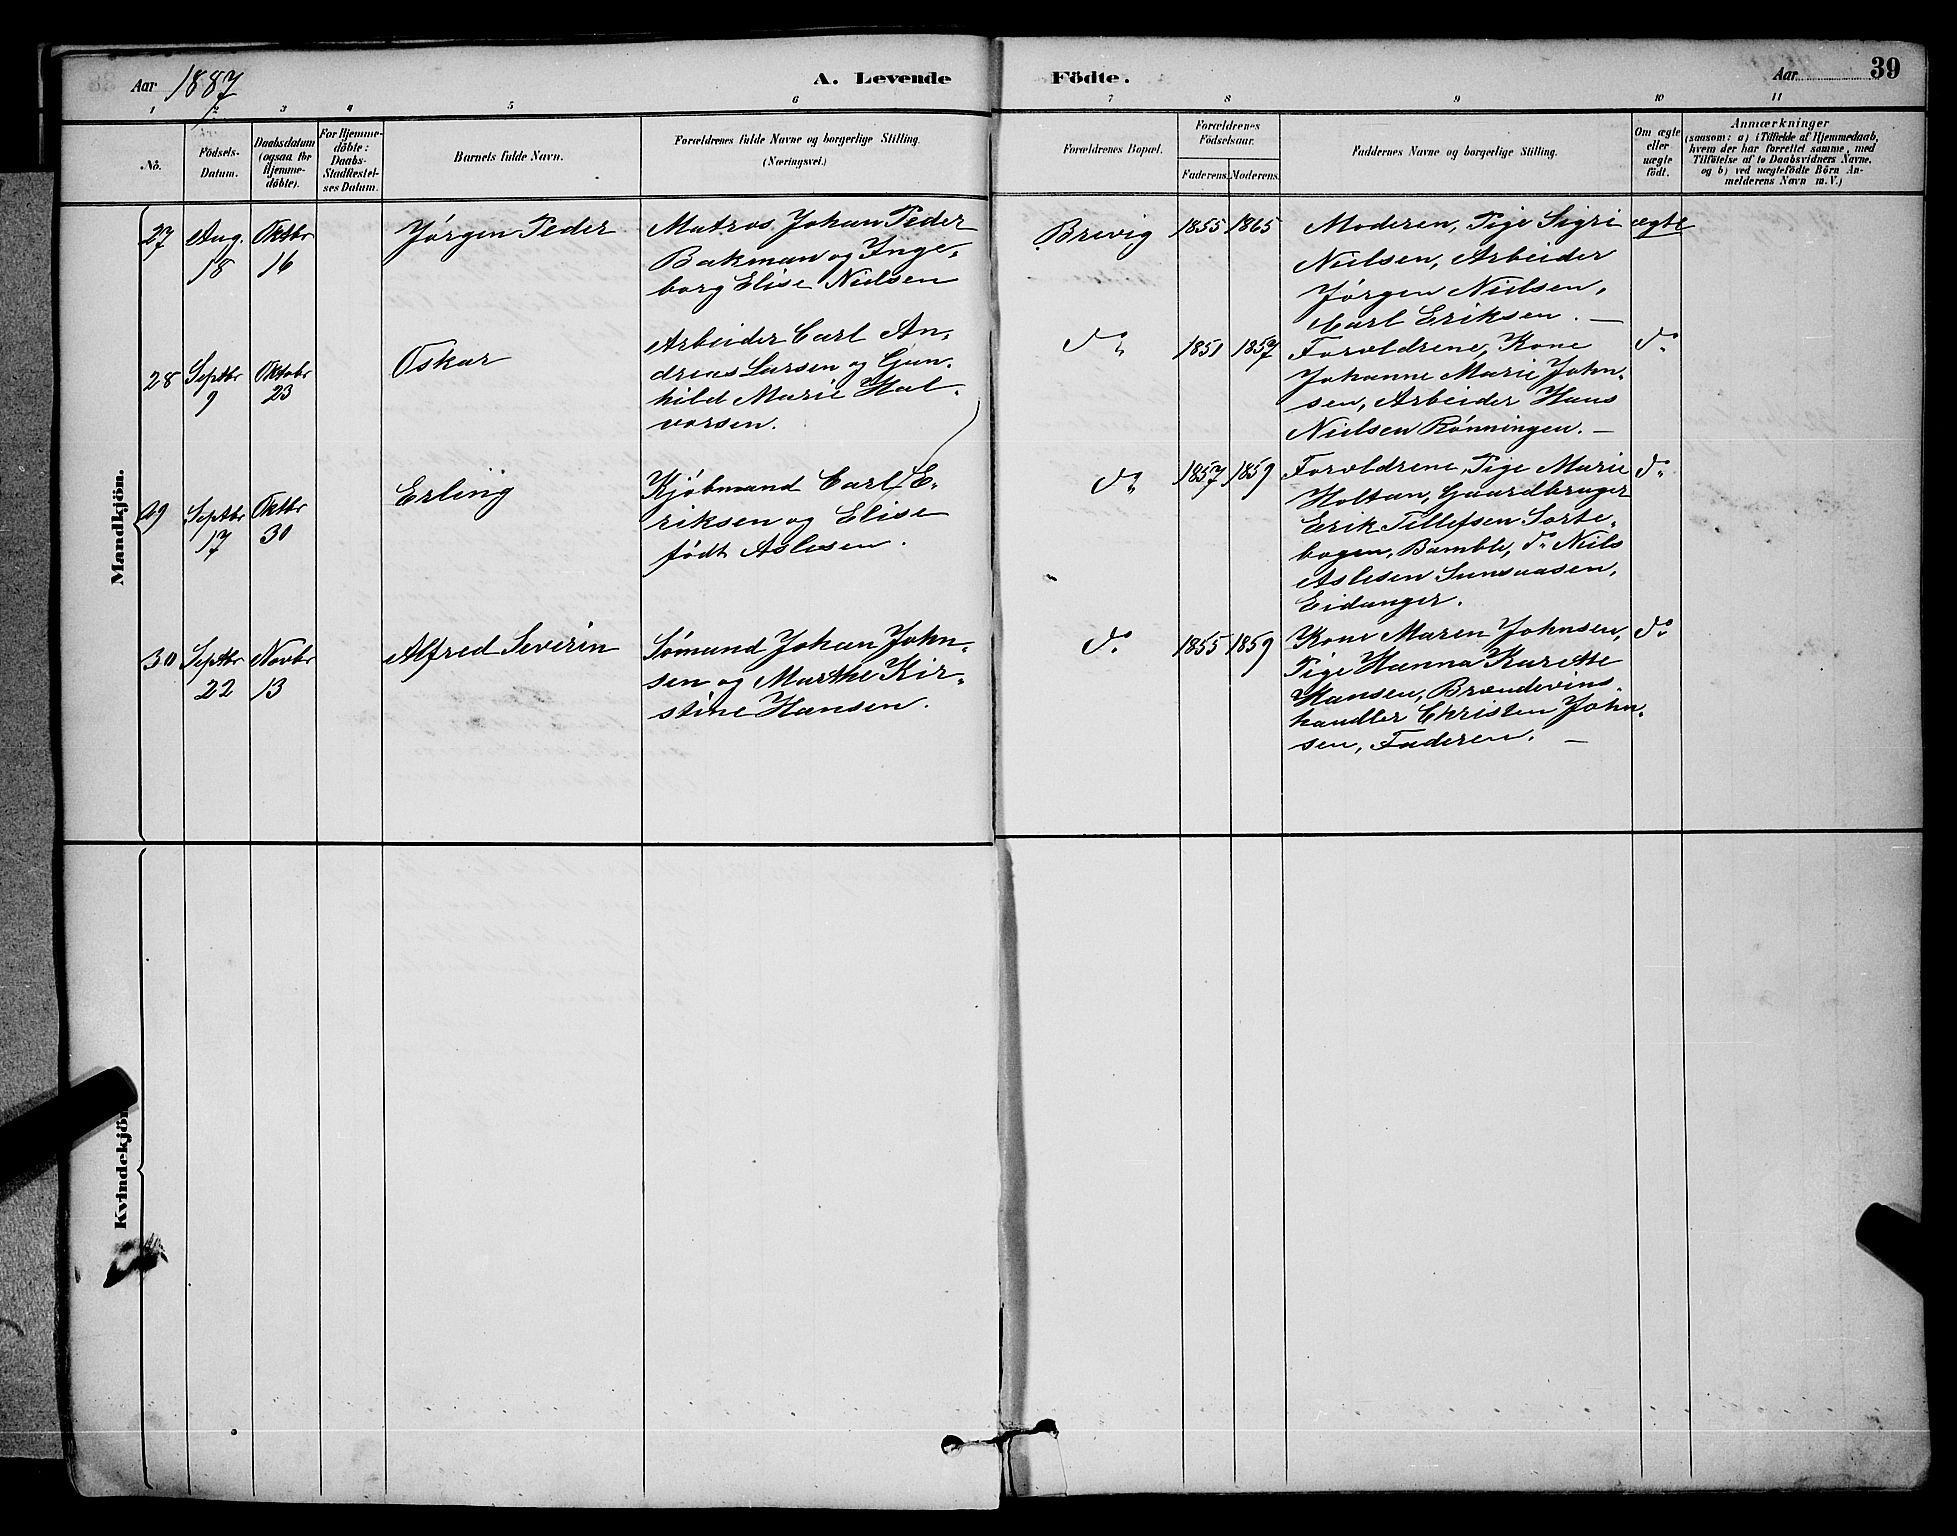 Aar 1887
A. Levende Födte.
Aar
39
1 2 3 4 5 6 7 8 9 10 11
No.
Födsels-
Datum.
Daabsdatum
(ogsaa for
Hjemme-
döbte).
For Hjemme-
döbte:
Daabs-
Stadfæstel-
ses Datum.
Barnets fulde Navn.
Forældrenes fulde Navne og borgerlige Stilling.
(Næringsvei.)
Forældrenes Bopæl.
Forældrenes
Födselsaar.
Faderens.
Moderens.
Faddernes Navne og borgerlige Stilling.
Om ægte
eller
uægte
födt.
Anmærkninger
(saasom: a) i Tilfælde af Hjemmedaab,
hvem der har forrettet samme, med
Tilföielse af to Daabsvidners Navne,
og b) ved uægtefödte Börn An-
melderens Navn m. V.)
Mandkjön.
27
Aug.
18
Oktbr
16
Jørgen Peder
Matros Johan Peder
Bakman og Inge-
borg Elise Nielsen
Brevig
1855
1865
Moderen, Pige Sigri
Nielsen, Arbeider
Jørgen Nielsen,
Carl Eriksen. —
ægte
28
Septbr
9
Oktobr
23
Oskar
Arbeider Carl An-
dreas Larsen og Gun-
hild Marie Hal-
vorsen.
do
1851
1857
Forældrene, Kone
Johanne Marie John-
sen, Arbeider Hans
Nielsen Rønningen. —
do
29
Septbr
17
Oktbr
30
Erling
Kjøbmand Carl E-
riksen og Elise
født Aslesen.
do
1857
1859
Forældrene, Pige Marie
Holtan, Gaardbruger
Erik Tellefsen Sorte-
bogen, Bamble, do Niels
Aslesen Sunsaasen,
Eidanger.
do
30
Septbr
22
Novbr
13
Alfred Severin
Sømand Johan John-
sen og Marthe Kir-
stine Hansen.
do
1855
1859
Kone Maren Johnsen,
Pige Hanna Karette
Hansen, Brændevins-
handler Christen John-
sen, Faderen. —
do
Kvindekjön